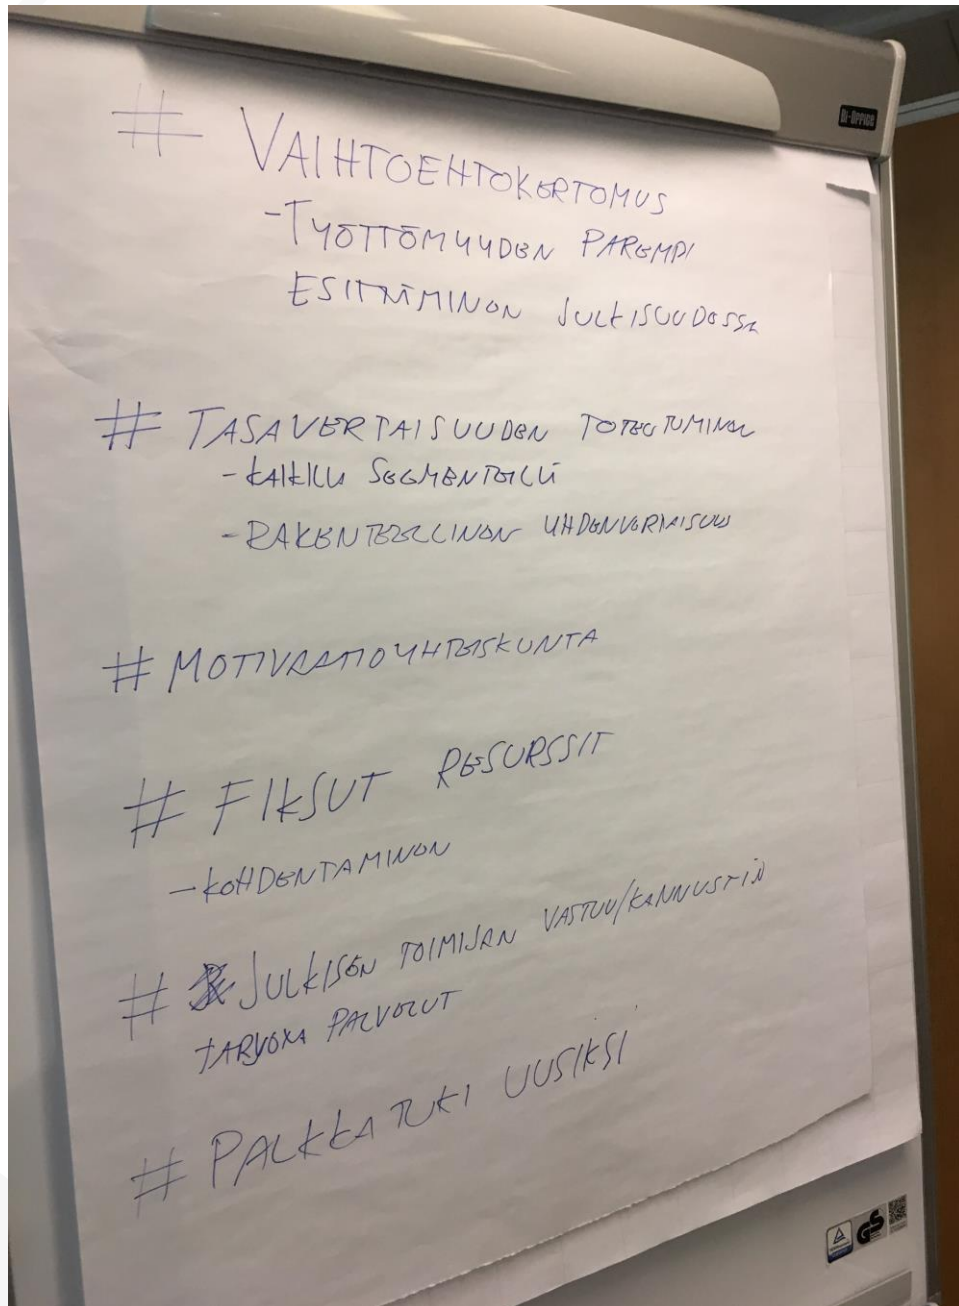 BI-OFFICE
# VAIHTOEHTOKERTOMUS
- TYÖTTÖMYYDEN PAREMPI
ESITTÄMINEN JULKISUUDESSA
# TASAVERTAISUUDEN TOTEUTUMINEN
- KAIKILLA SEGMENTEILLÄ
- RAKENTEELLINEN YHDENVERTAISUUS
# MOTIVAATIOYHTEISKUNTA
# FIKSUT RESURSSIT
- KOHDENTAMINEN
# JULKISEN TOIMIJAN VASTUU/KANNUSTIN
TARJOTA PALVELUT
# PALKKATUKI UUSIKSI
GS